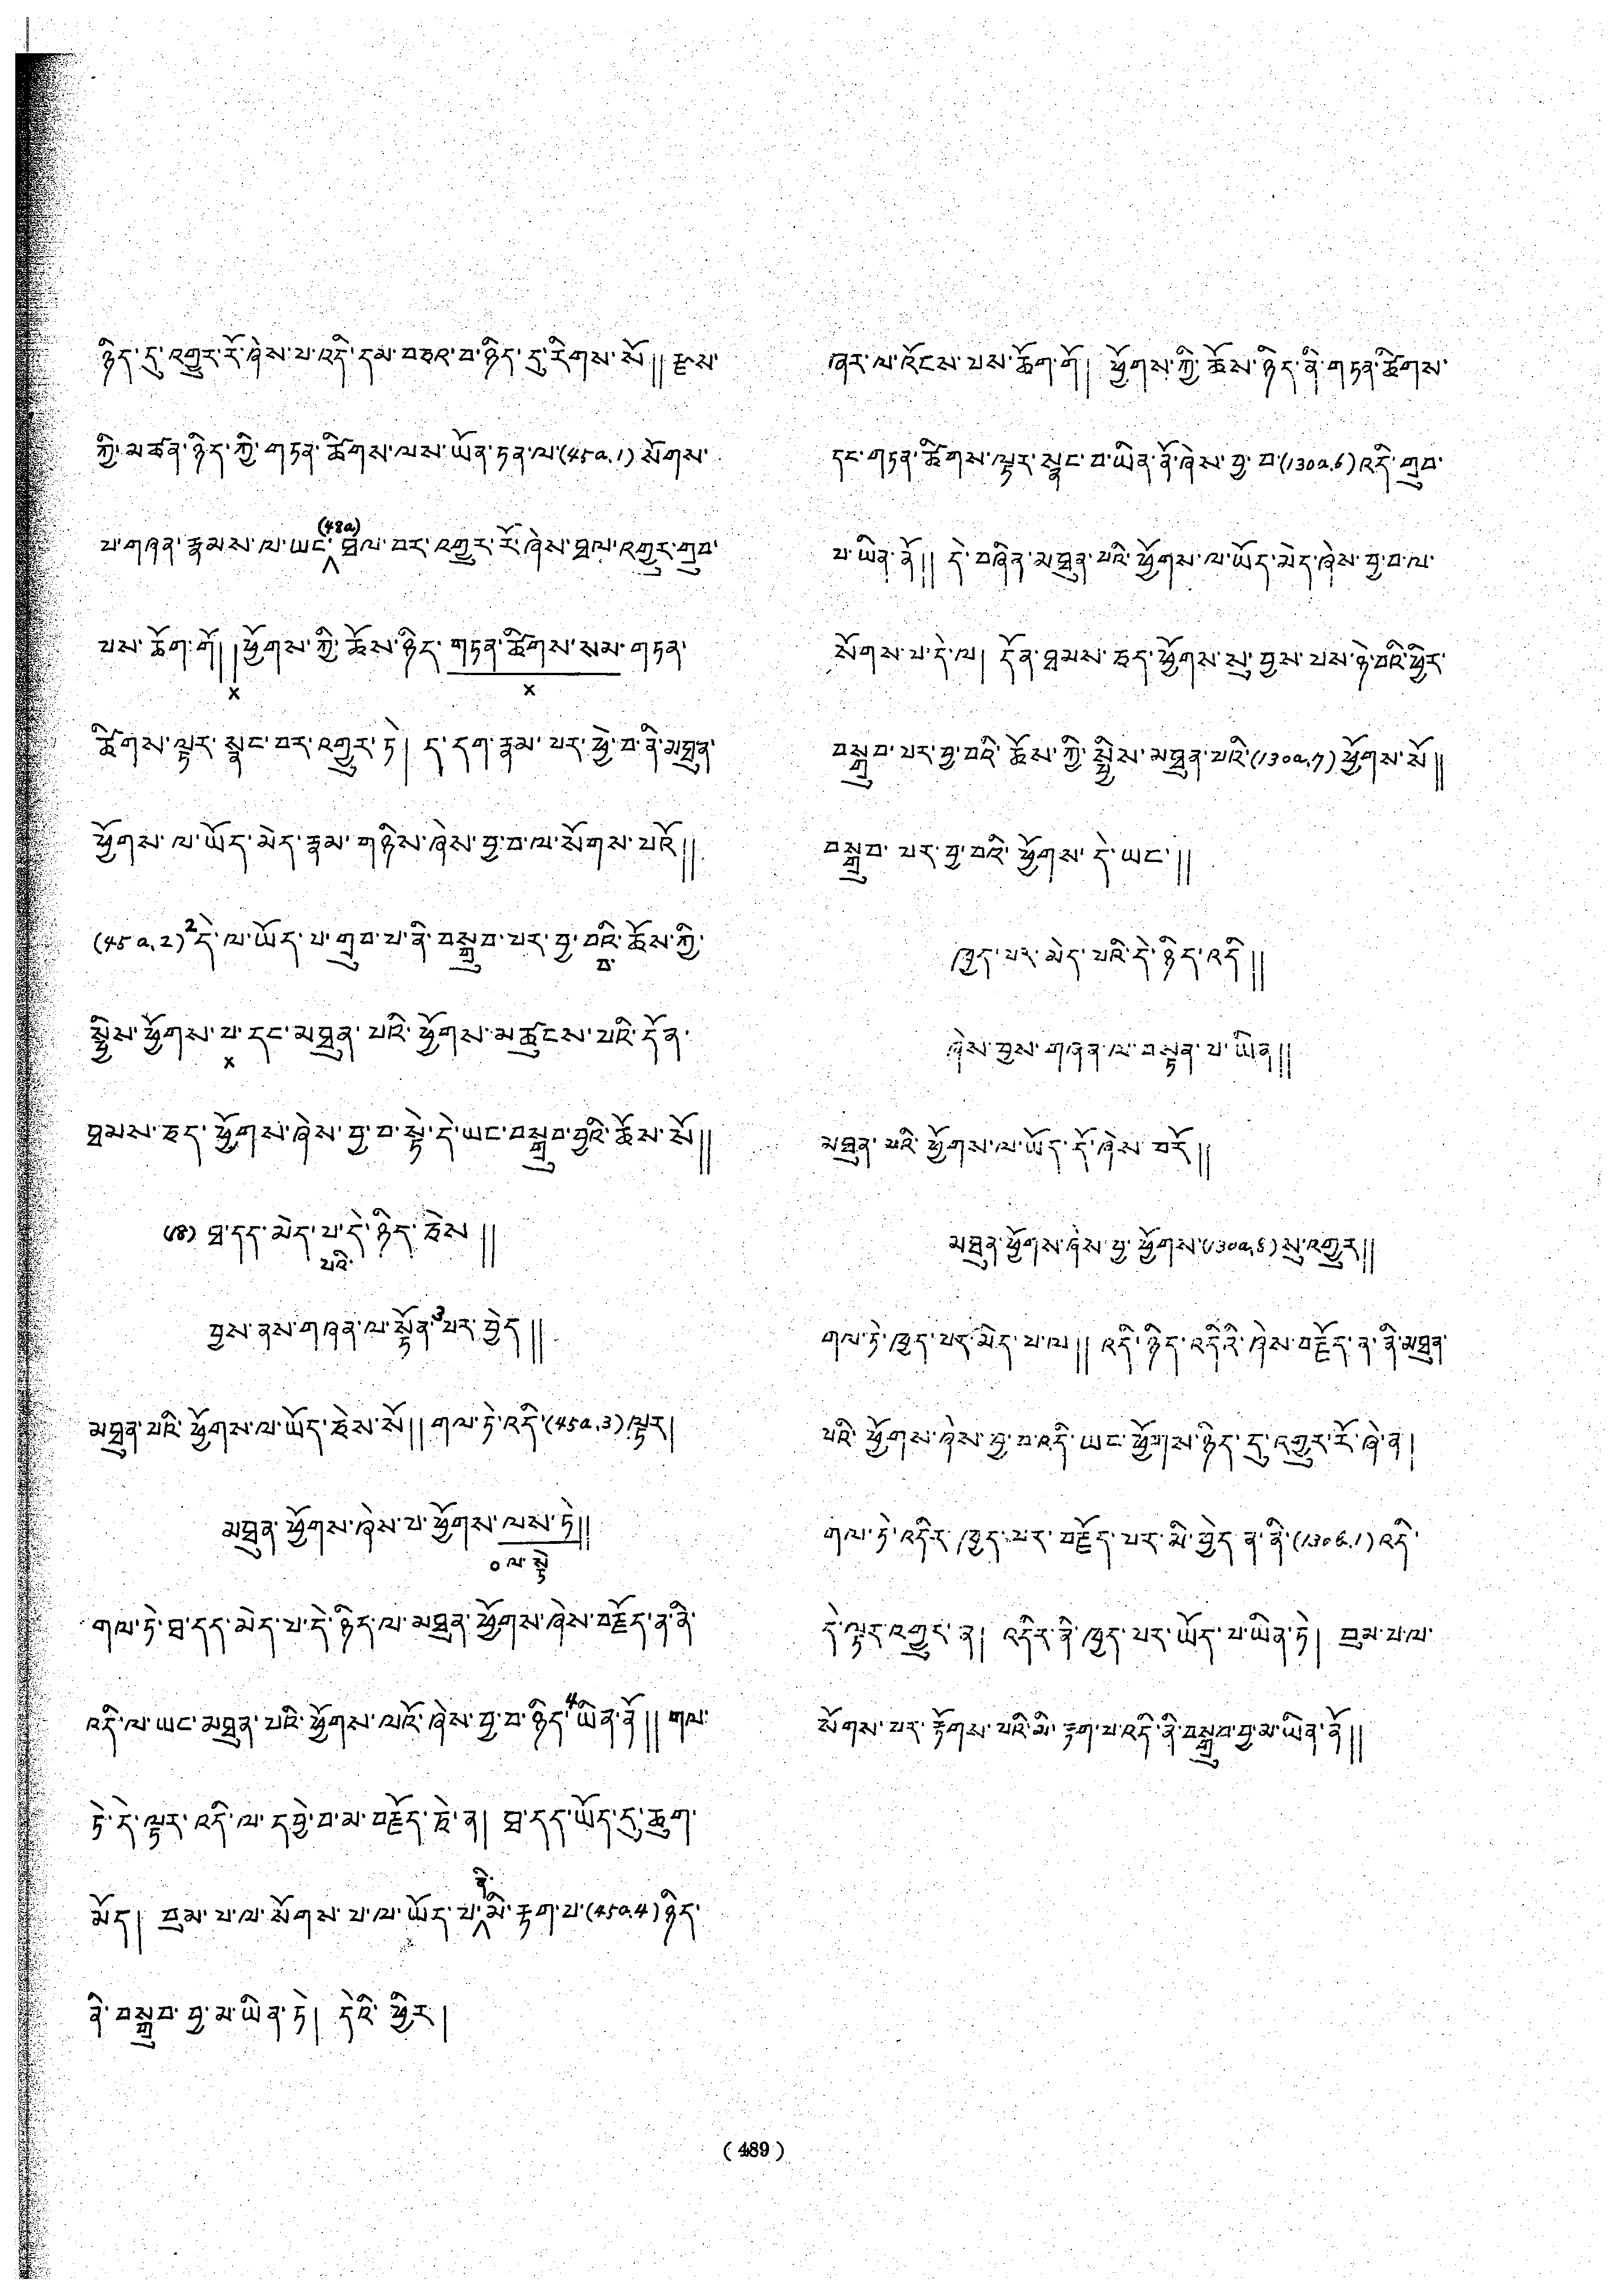 ཉིད་དུ་འགྱུར་རོ་ཞེས་པ་འདི་དམ་བཅའ་བ་ཉིད་དུ་རིགས་སོ།། རྫས་
ཀྱི་མཚན་ཉིད་ཀྱི་གཏན་ཚིགས་ལས་ཡོན་ཏན་ལ་(45a,1)སོགས་
(48a)
པ་གཞན་རྣམས་ལ་ཡང་ཐལ་བར་འགྱུར་རོ་ཞེས་ཐལ་འགྱུར་གྲུབ་
པས་ཆོག་གོ། །ཕྱོགས་ཀྱི་ཆོས་ཉིད་གཏན་ཚིགས་སམ་གཏན་
x x
ཚིགས་ལྟར་སྣང་བར་འགྱུར་ཏེ། ད་དག་རྣམ་པར་ཕྱེ་བ་ནི་མཐུན་
ཕྱོགས་ལ་ཡོད་མེད་རྣམ་གཉིས་ཞེས་བྱ་བ་ལ་སོགས་པའོ།།
(45a,2)2དེ་ལ་ཡོད་པ་གྲུབ་པ་ནི་བསྒྲུབ་པར་བྱ་བའི་ཆོས་ཀྱི་
བ་
སྤྱིས་ཕྱོགས་པ་དང་མཐུན་པའི་ཕྱོགས་མཚུངས་པའི་དོན་
x
ཐམས་ཅད་ཕྱོགས་ཞེས་བྱ་བ་སྟེ་དེ་ཡང་བསྒྲུབ་བྱའི་ཆོས་སོ།།
(8) ཐ་དད་མེད་པ་དེ་ཉིད་ཅེས།།
པའི་
བྱས་ནས་གཞན་ལ་སྟོན་3པར་བྱེད།།
མཐུན་པའི་ཕྱོགས་ལ་ཡོད་ཅེས་སོ།། གལ་ཏེ་འདི་(45a,3)ལྟར།
མཐུན་ཕྱོགས་ཞེས་པ་ཕྱོགས་ལས་ཏེ།།
o ལ་སྟེ
གལ་ཏེ་ཐ་དད་མེད་པ་དེ་ཉིད་ལ་མཐུན་ཕྱོགས་ཞེས་བརྗོད་ན་ནི་
འདི་ལ་ཡང་མཐུན་པའི་ཕྱོགས་ལའོ་ཞེས་བྱ་བ་ཉིད་4ཡིན་ནོ།། གལ་
ཏེ་དེ་ལྟར་འདི་ལ་དབྱེ་བ་མ་བརྗོད་ཅེ་ན། ཐ་དད་ཡོད་དུ་ཆུག་
ནི་
མོད། བུམ་པ་ལ་སོགས་པ་ལ་ཡོད་པ་མི་རྟག་པ་(45a,4)ཉིད་
ནི་བསྒྲུབ་བྱ་མ་ཡིན་ཏེ། དེའི་ཕྱིར།
ཞར་ལ་འོངས་པས་ཆོག་གོ། ཕྱོགས་ཀྱི་ཆོས་ཉིད་ནི་གཏན་ཚིགས་
དང་གཏན་ཚིགས་ལྟར་སྣང་བ་ཡིན་ནོ་ཞེས་བྱ་བ་(130a,6)འདི་གྲུབ་
པ་ཡིན་ནོ།། དེ་བཞིན་མཐུན་པའི་ཕྱོགས་ལ་ཡོད་མེད་ཞེས་བྱ་བ་ལ་
སོགས་པ་དེ་ལ། དོན་ཐམས་ཅད་ཕྱོགས་སུ་བྱས་པས་ཉེ་བའི་ཕྱིར་
བསྒྲུབ་པར་བྱ་བའི་ཆོས་ཀྱི་སྤྱིས་མཐུན་པའི་(130a,7)ཕྱོགས་སོ།།
བསྒྲུབ་པར་བྱ་བའི་ཕྱོགས་དེ་ཡང་།།
ཁྱད་པར་མེད་པའི་དེ་ཉིད་འདི།།
ཞེས་བྱས་གཞན་ལ་བསྟན་པ་ཡིན།།
མཐུན་པའི་ཕྱོགས་ལ་ཡོད་དོ་ཞེས་བརོ།།
མཐུན་ཕྱོགས་ཞེས་བྱ་ཕྱོགས་(130a,8)སུ་འགྱུར།།
གལ་ཏེ་ཁྱད་པར་མེད་པ་ལ།། འདི་ཉིད་འདིའི་ཞེས་བརྗོད་ན་ནི་མཐུན་
པའི་ཕྱོགས་ཞེས་བྱ་བ་འདི་ཡང་ཕྱོགས་ཉིད་དུ་འགྱུར་རོ་ཞེ་ན།
གལ་ཏེ་འདིར་ཁྱད་པར་བརྗོད་པར་མི་བྱེད་ན་ནི་(130b,1)འདི་
དེ་ལྟར་འགྱུར་ན། འདིར་ནི་ཁྱད་པར་ཡོད་པ་ཡིན་ཏེ། བུམ་པ་ལ་
སོགས་པར་རྟོགས་པའི་མི་རྟག་པ་འདི་ནི་བསྒྲུབ་བྱ་མ་ཡིན་ནོ།།
(489)